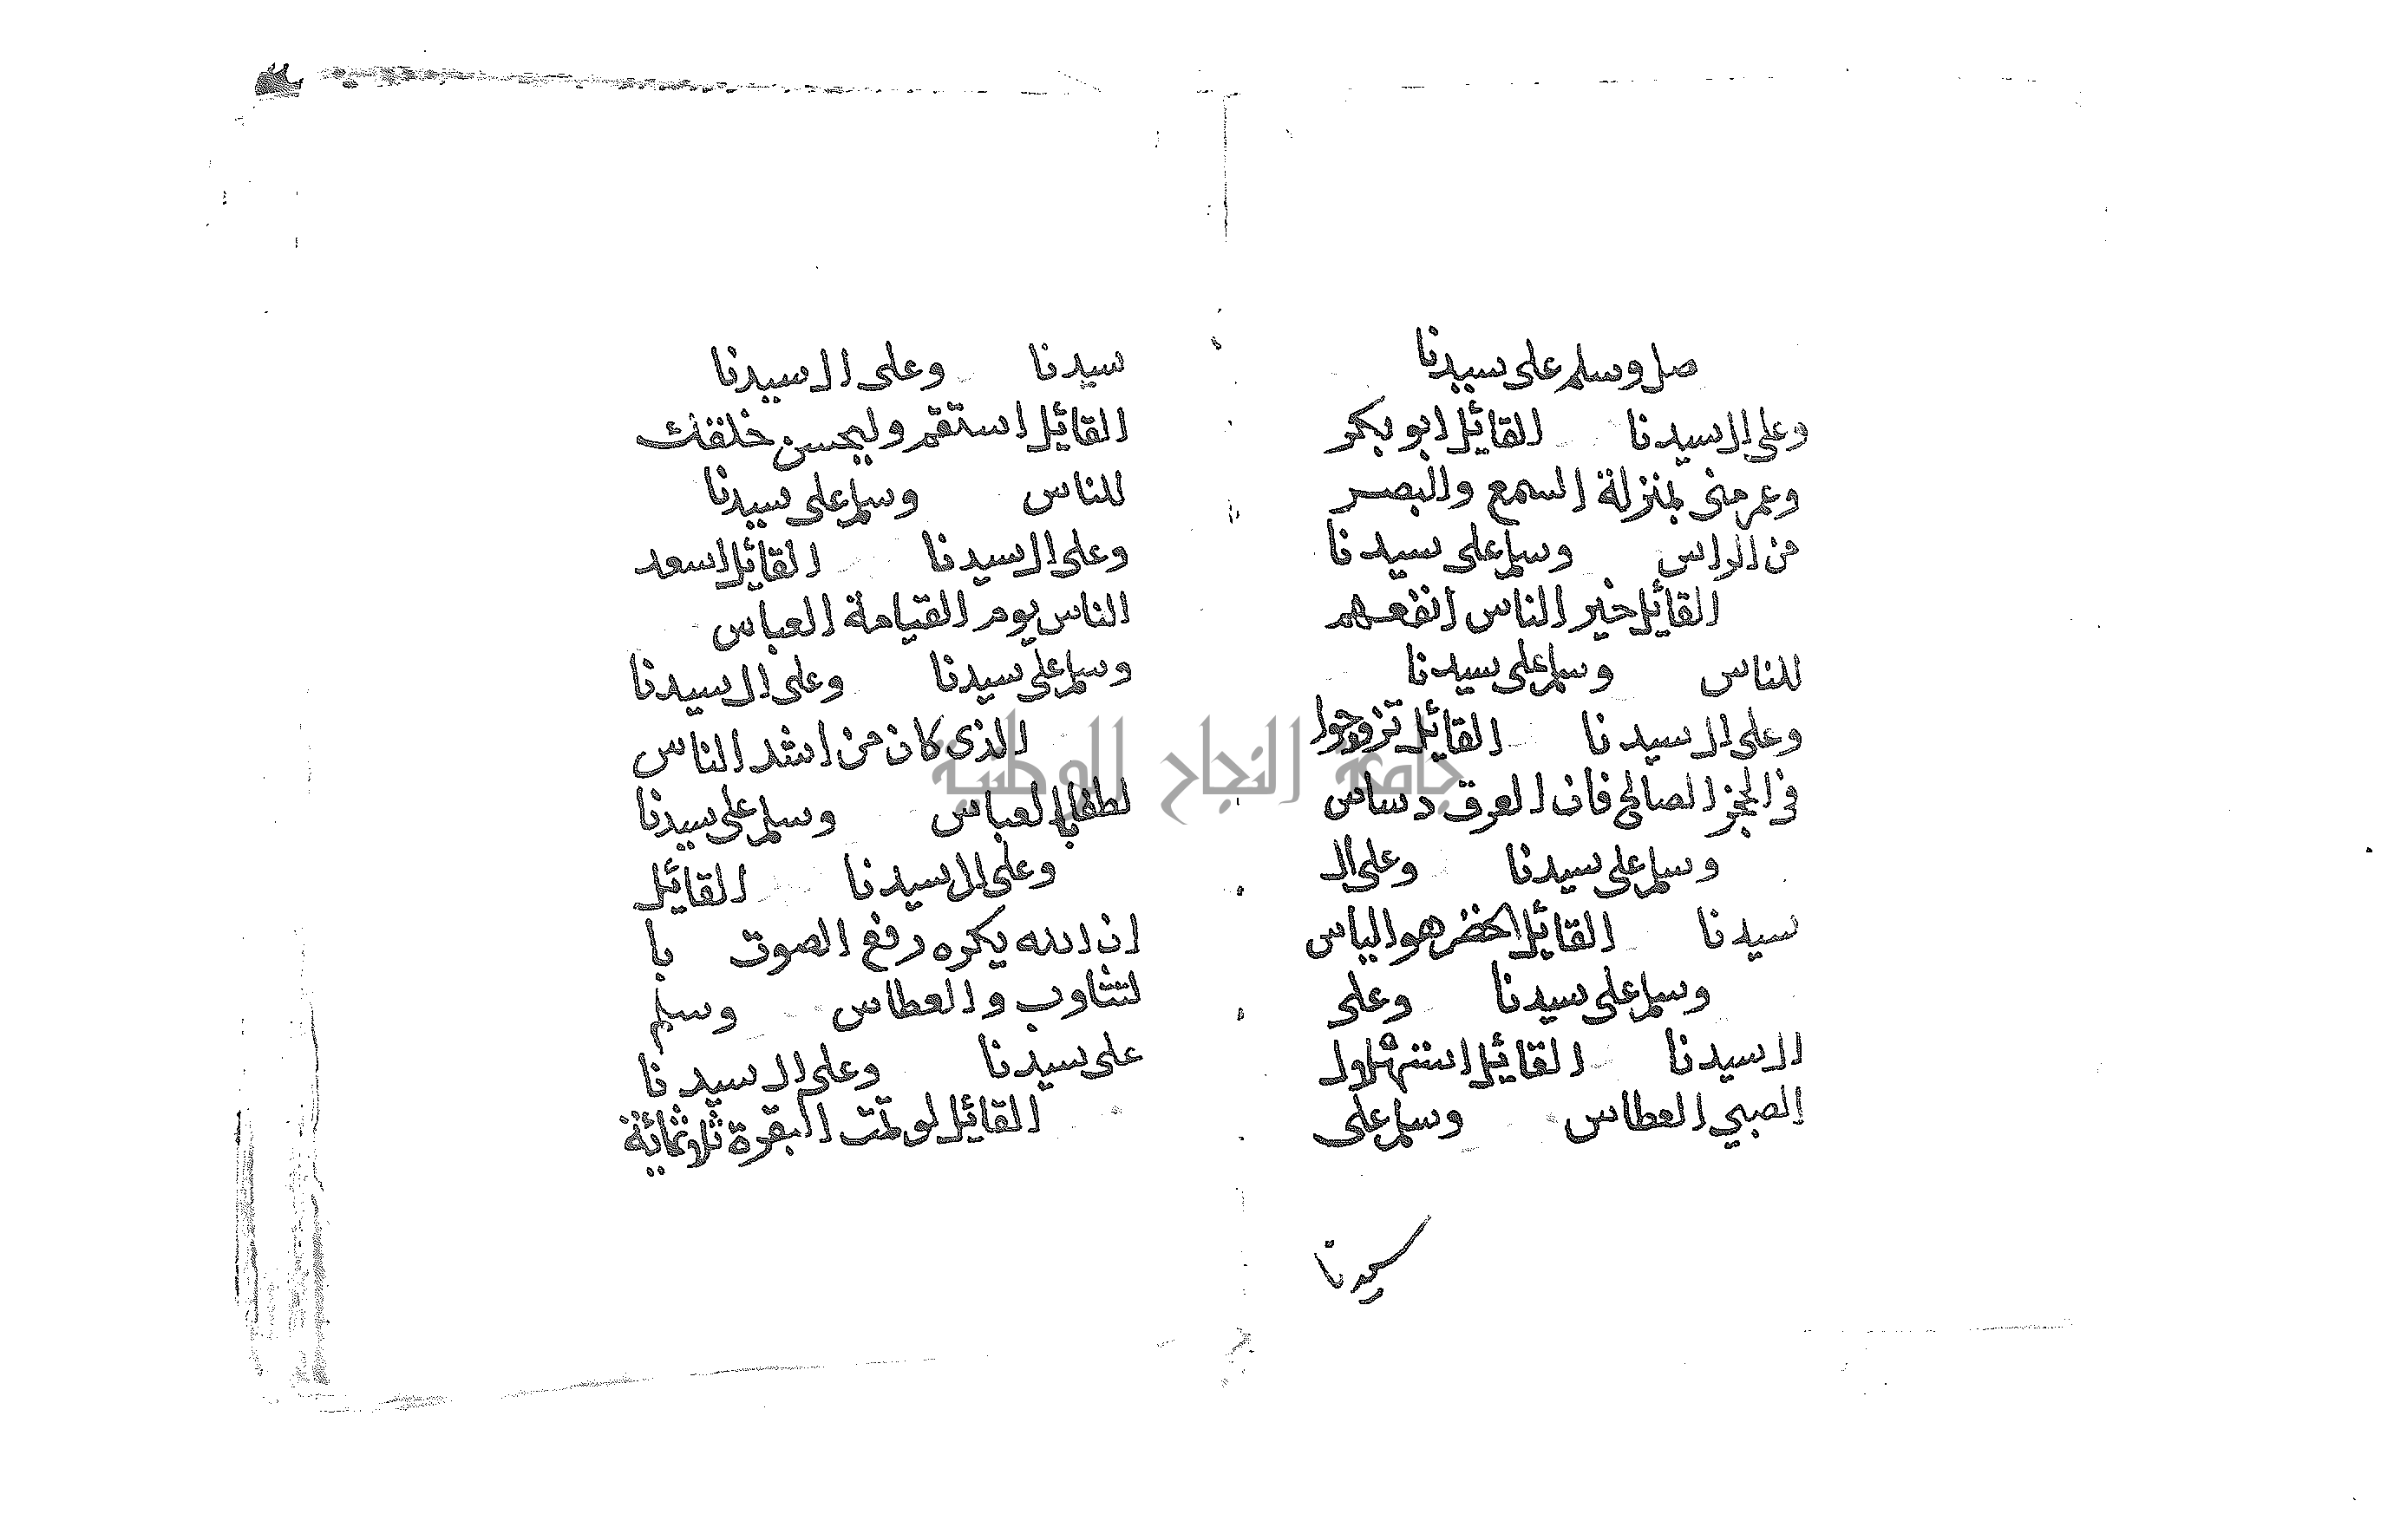 صل وسلم على سيدنا
وعلى ال سيدنا القائل ابو بكر
وعمر منى بمنزلة السمع والبصر
من الراس وسلم على سيدنا
القائل خير الناس انفعهم
للناس وسلم على سيدنا
وعلى ال سيدنا القائل تزوجوا
فى الحجز الصالح فان العرق دساس
وسلم على سيدنا وعلى ال
سيدنا القائل الخضر هو الياس
وسلم على سيدنا وعلى
ال سيدنا القائل استهلال
الصبي العطاس وسلم على
سيدنا
سيدنا وعلى ال سيدنا
القائل استقم وليحسن خلقك
للناس وسلم على سيدنا
وعلى ال سيدنا القائل اسعد
الناس يوم القيامة العباس
وسلم على سيدنا وعلى ال سيدنا
الذى كان من اشد الناس
لطفا بالعباس وسلم على سيدنا
وعلى ال سيدنا القائل
ان الله يكره رفع الصوت با
لتثاوب والعطاس وسلم
على سيدنا وعلى ال سيدنا
القائل لو تمت البقرة ثلاثمائة
جامعة النجاح الوطنية